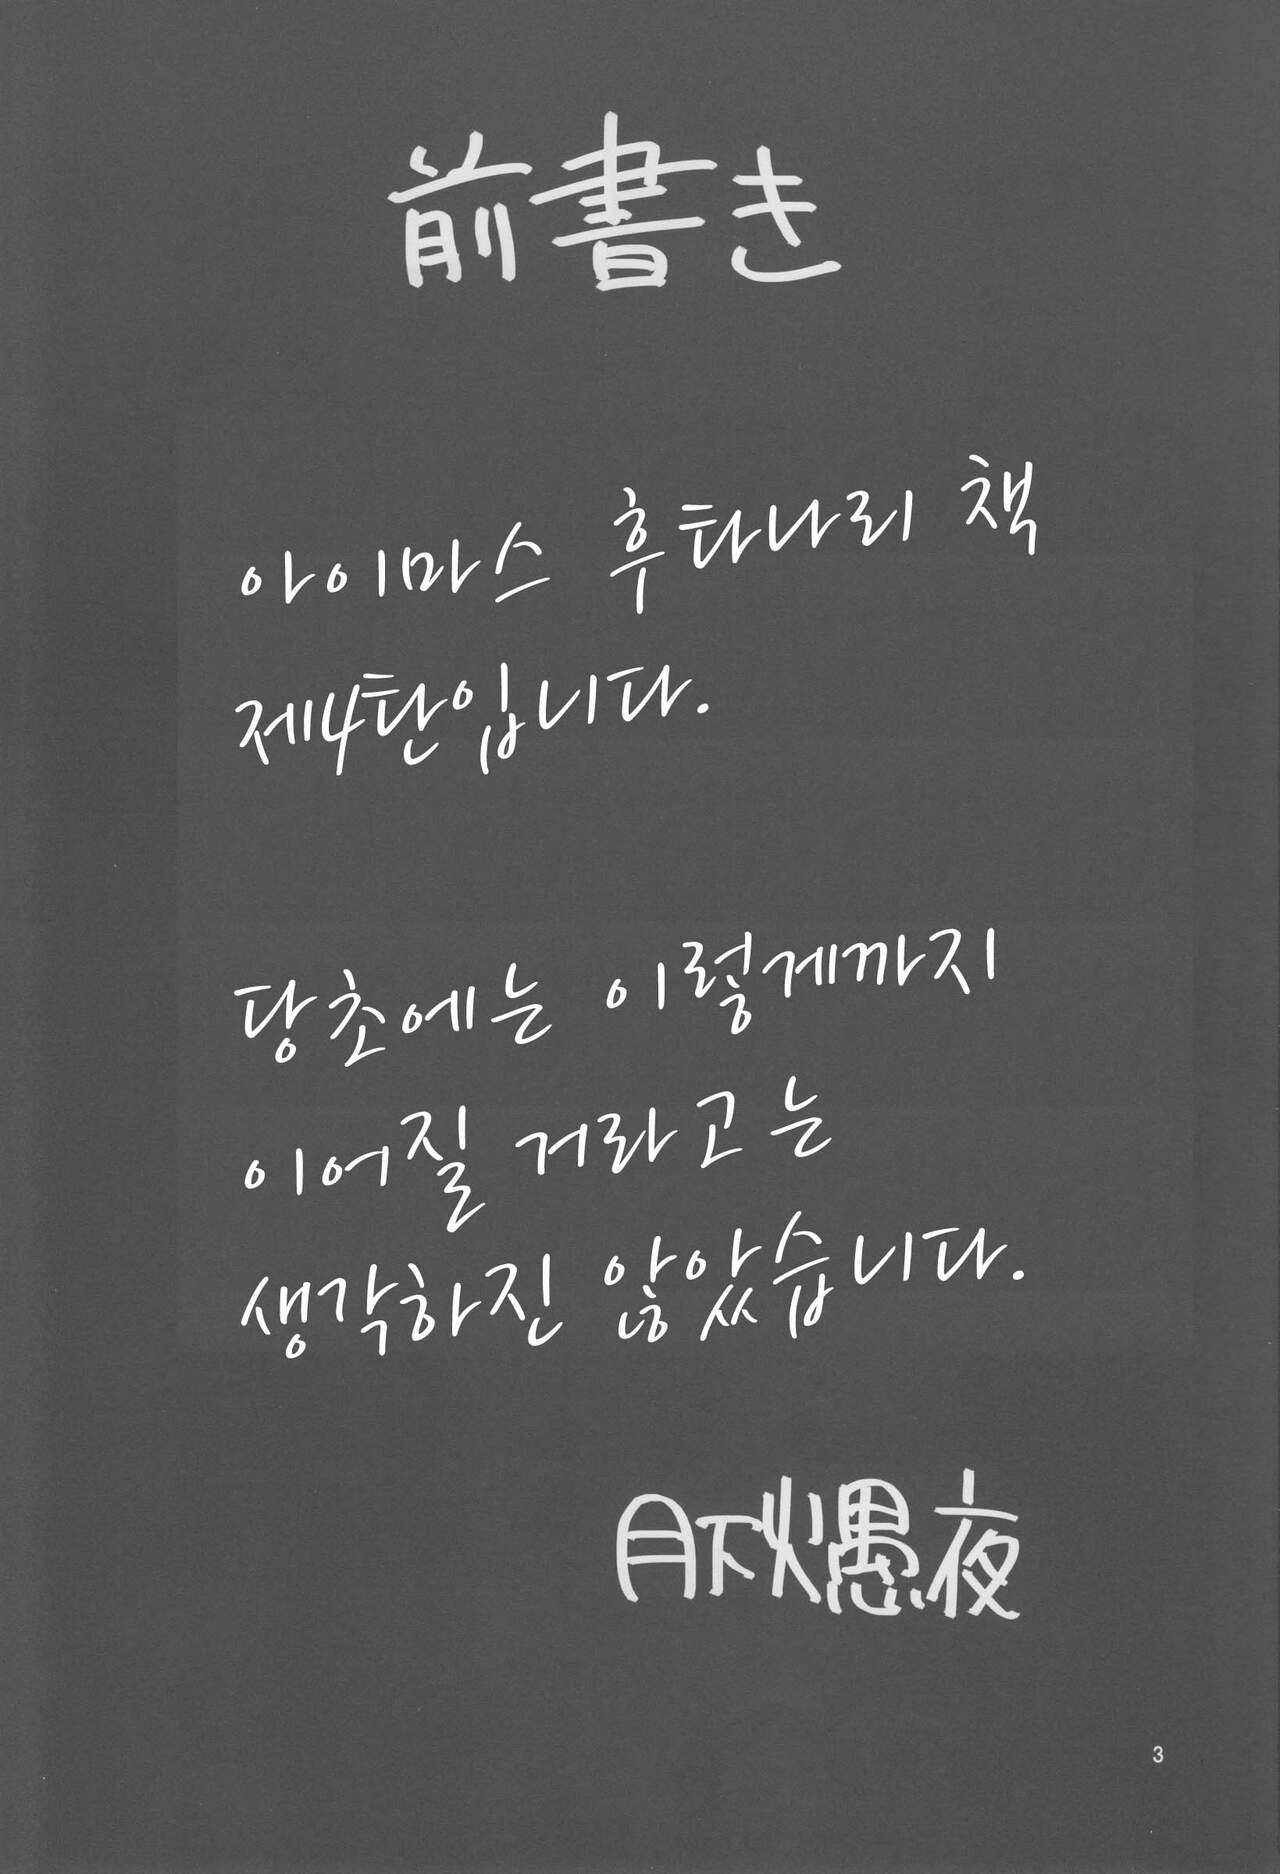 前書き
아이마스 후타나리 책
제4탄입니다.
당초에는 이렇게까지
이어질 거라고는
생각하진 않았습니다.
月下火愚夜
3